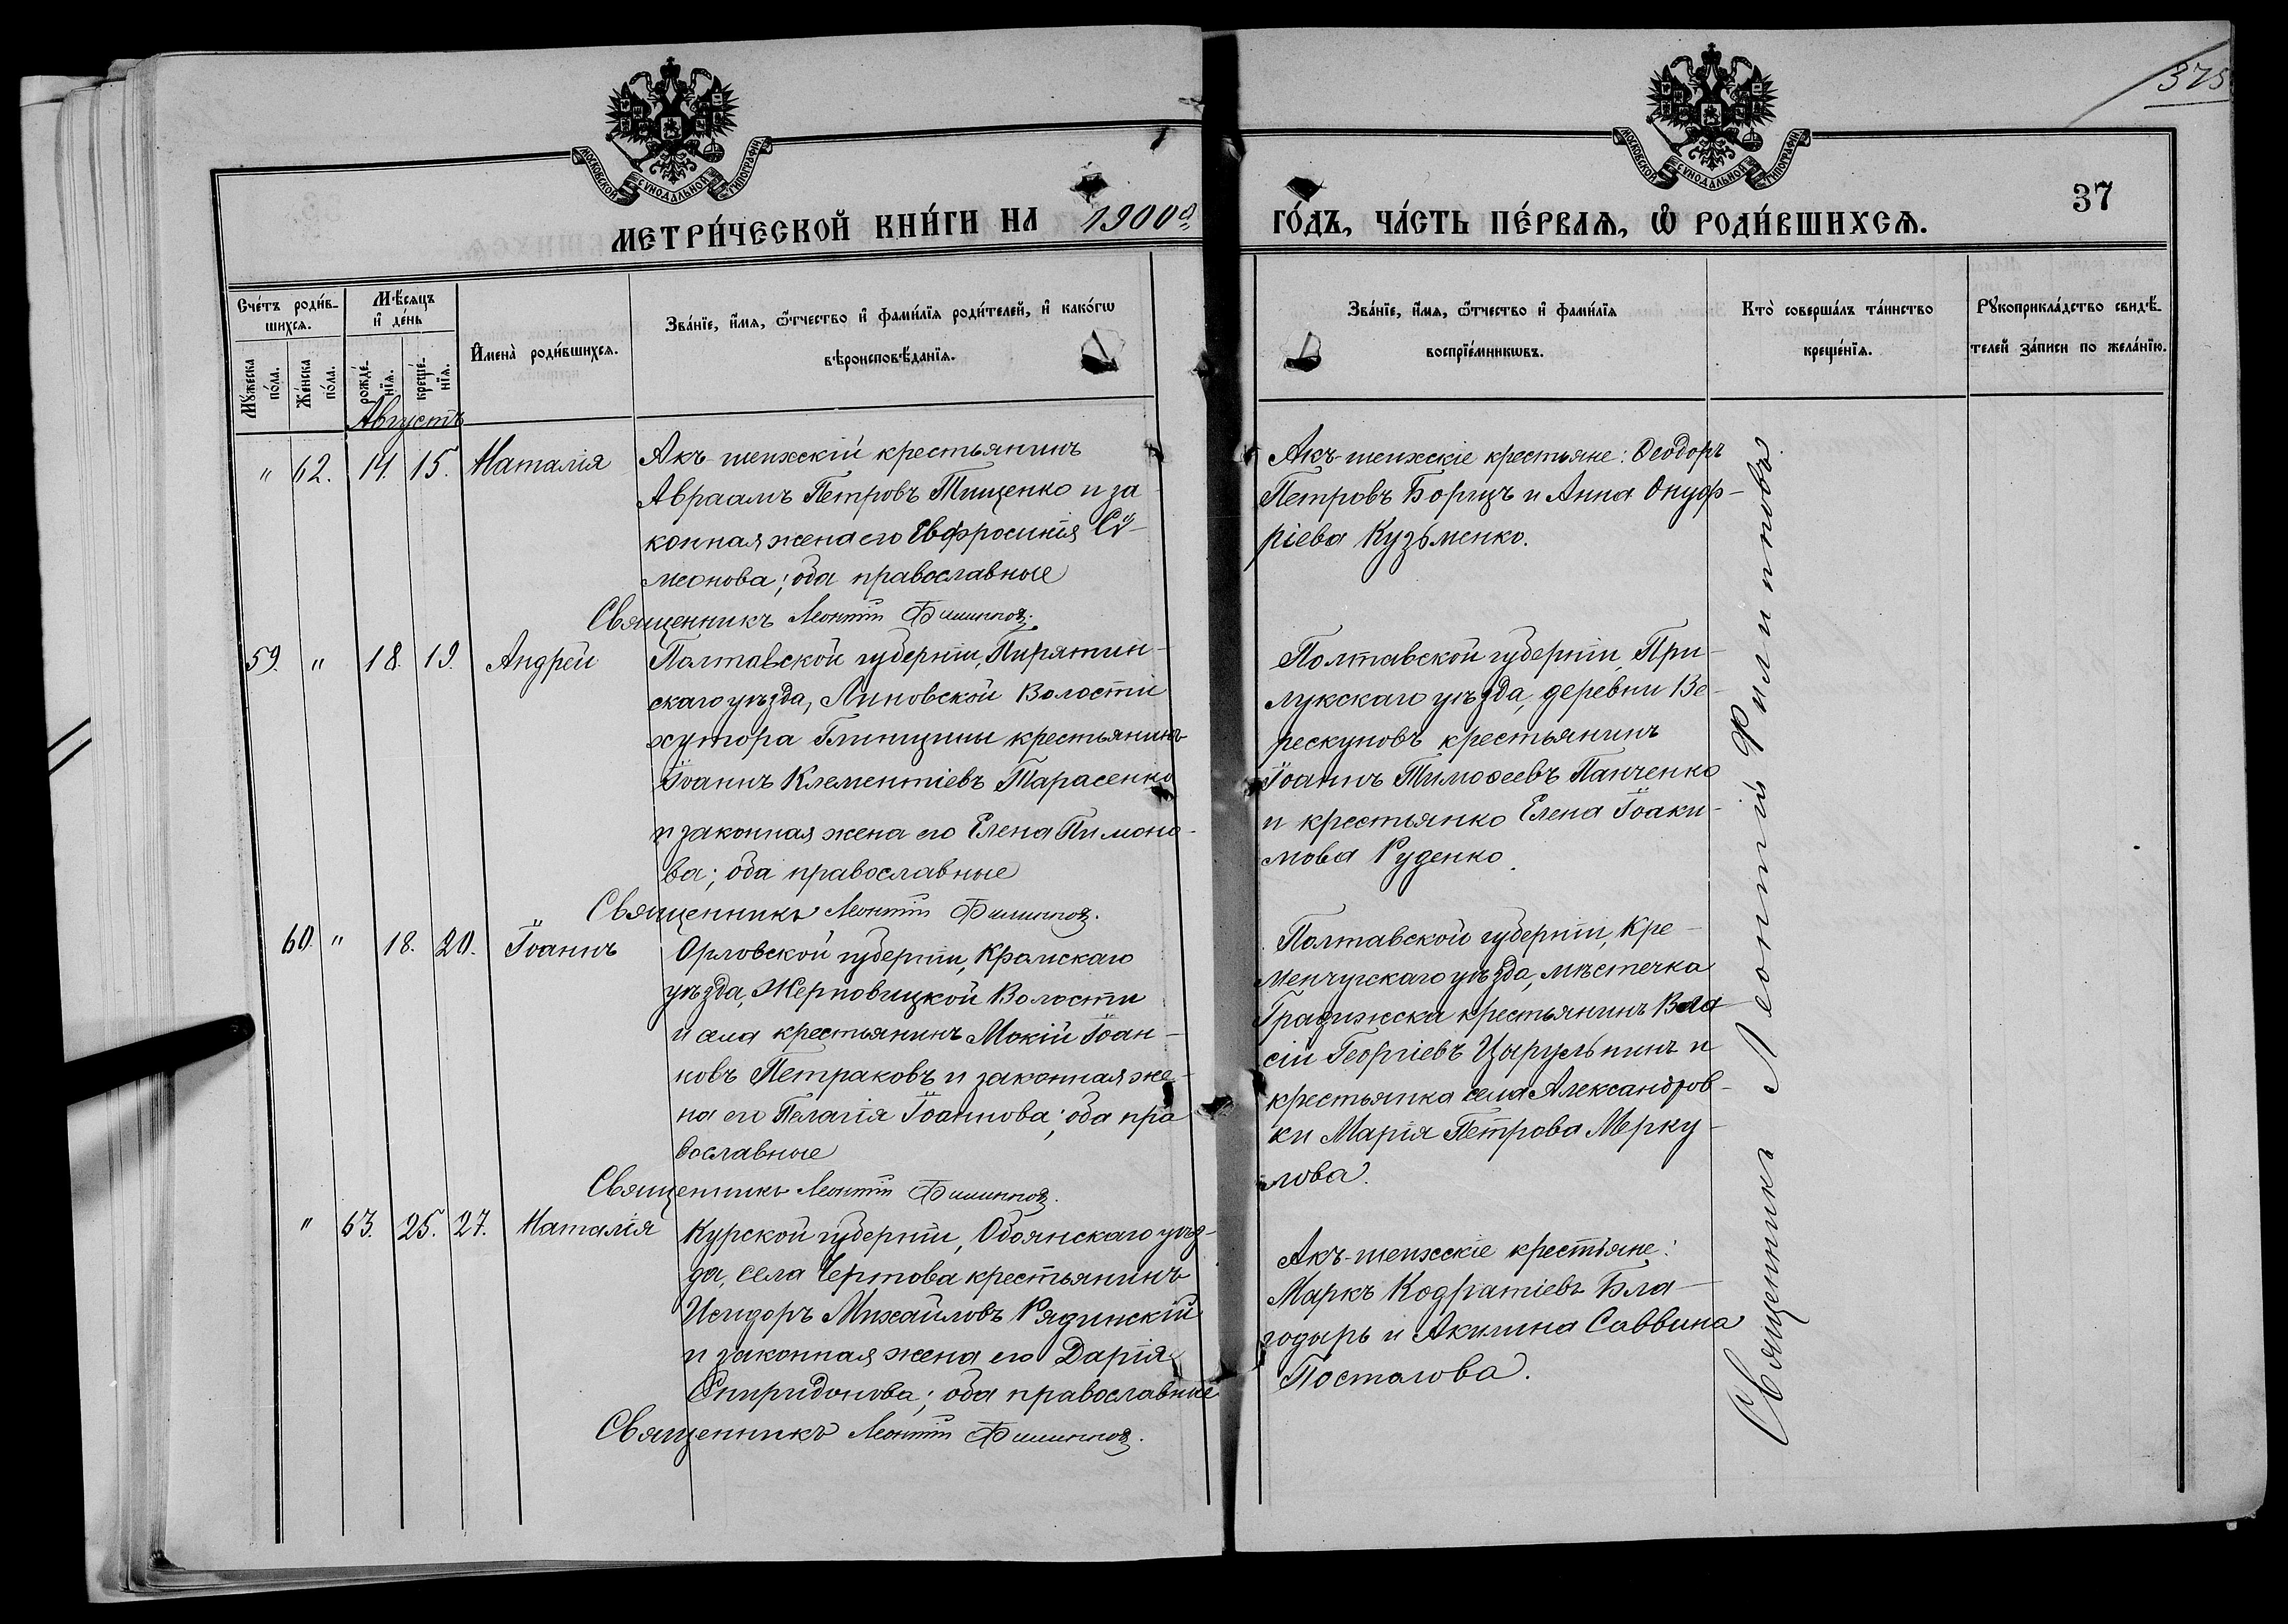 375
МОСКОВСКОЙ СѴНОДАЛЬНОЙ ТИПОГРАФІИ
МОСКОВСКОЙ СѴНОДАЛЬНОЙ ТИПОГРАФІИ
37
МЕТРИ́ЧЕСКОЙ КНИ́ГИ НА 1900й ГО́ДЪ, ЧА́СТЬ ПЕ́РВАѦ, Ѡ҆ РОДИ́ВШИХСѦ.
Сче́тъ роди́в-
шихсѧ.
Мꙋ́жеска по́ла.
Же́нска по́ла.
Мѣ́сѧцъ
и҆ де́нь
рожде́-
нїѧ.
креще́-
нїѧ.
И҆мена̀ роди́вшихсѧ.
Зва́нїе, и҆́мѧ, ѻ҆́тчество и҆ фами́лїѧ роди́телей, и҆ како́гѡ
вѣроисповѣ́данїѧ.
Зва́нїе, и҆́мѧ, ѻ҆́тчество и҆ фами́лїѧ
воспрїе́мникѡвъ.
Кто̀ соверша́лъ та́инство
креще́нїѧ.
Рꙋкоприкла́дство свидѣ́-
телей за́писи по жела́нїю.
Августъ
" 62. 14. 15. Наталія
Акъ-тепжскій крестьянинъ
Авраамъ Петровъ Тищенко и за
конная жена его Евфросинія Сѵ-
меонова; оба православные
Священникъ Леонтій Филипповъ.
Акъ-тепжскіе крестьяне: Ѳеодоръ
Петровъ Борецъ и Анна Онуф-
ріева Кузьменко.
59. " 18. 19. Андрей
Полтавской губерніи, Пирятин-
скаго уѣзда, Линовской Волости
хутора Глинщины крестьянинъ
Іоаннъ Клементіевъ Тарасенко
и законная жена его Елена Пимоно-
ва; оба православные
Священникъ Леонтій Филипповъ.
Полтавской губерніи, При-
лукскаго уѣзда, деревни Ве-
рескуновъ крестьянинъ
Іоаннъ Тимоѳеевъ Панченко
и крестьянко Елена Іоаки-
мова Руденко.
60. " 18. 20. Іоаннъ
Орловской губерніи, Кромскаго
уѣзда, Жерновицкой Волости
и села крестьянинъ Мокій Іоан-
новъ Петраковъ и законная же-
на его Пелагія Іоаннова; оба пра
вославные
Священникъ Леонтій Филипповъ.
Полтавской губерніи, Кре-
менчугскаго уѣзда, мѣстечка
Градижска крестьянинъ Вла
сій Георгіевъ Цырульникъ и
крестьянка села Александров-
ки Марія Петрова Мерку-
лова.
" 63. 25. 27. Наталія
Курской губерніи, Обоянскаго уѣз-
да, села Чертова крестьянинъ
Исидоръ Михайловъ Рядинскій
и законная жена его Дарія
Спиридонова; оба православные
Священникъ Леонтій Филипповъ.
Акъ-тепжскіе крестіяне:
Маркъ Кодратіевъ Бла-
годырь и Акилина Саввина
Посталова.
Священникъ Леонтій Филипповъ